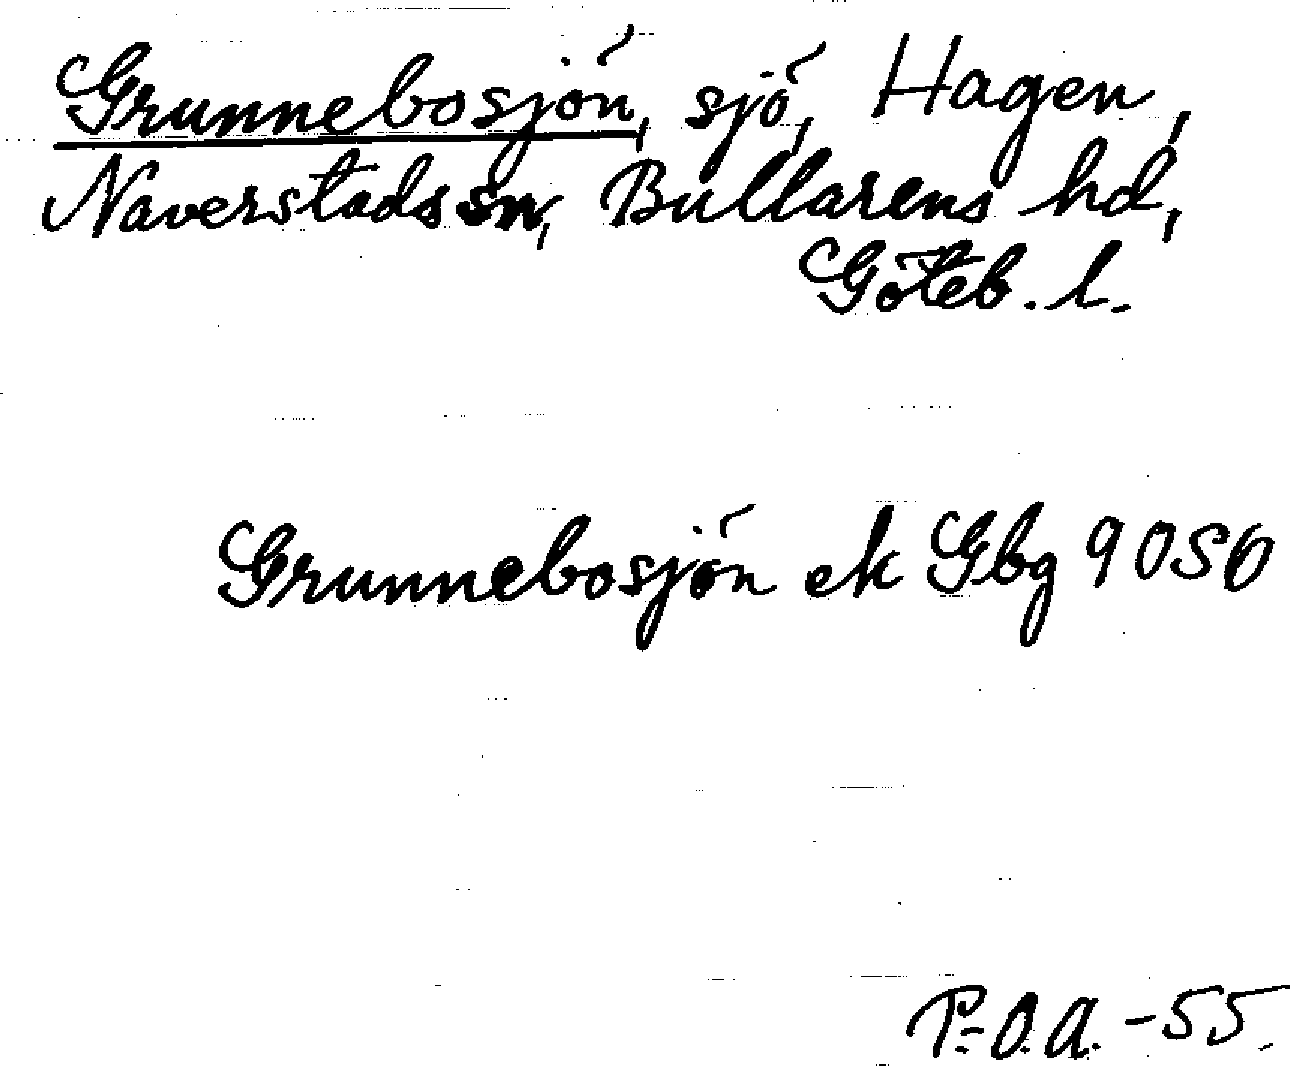 Grunnebosjön, sjö, Hagen,
Naverstads sn, Bullarens hd,
Göteb. l.
Grunnebosjön ek Gbg 9 OSO
P.-O.A. -55.